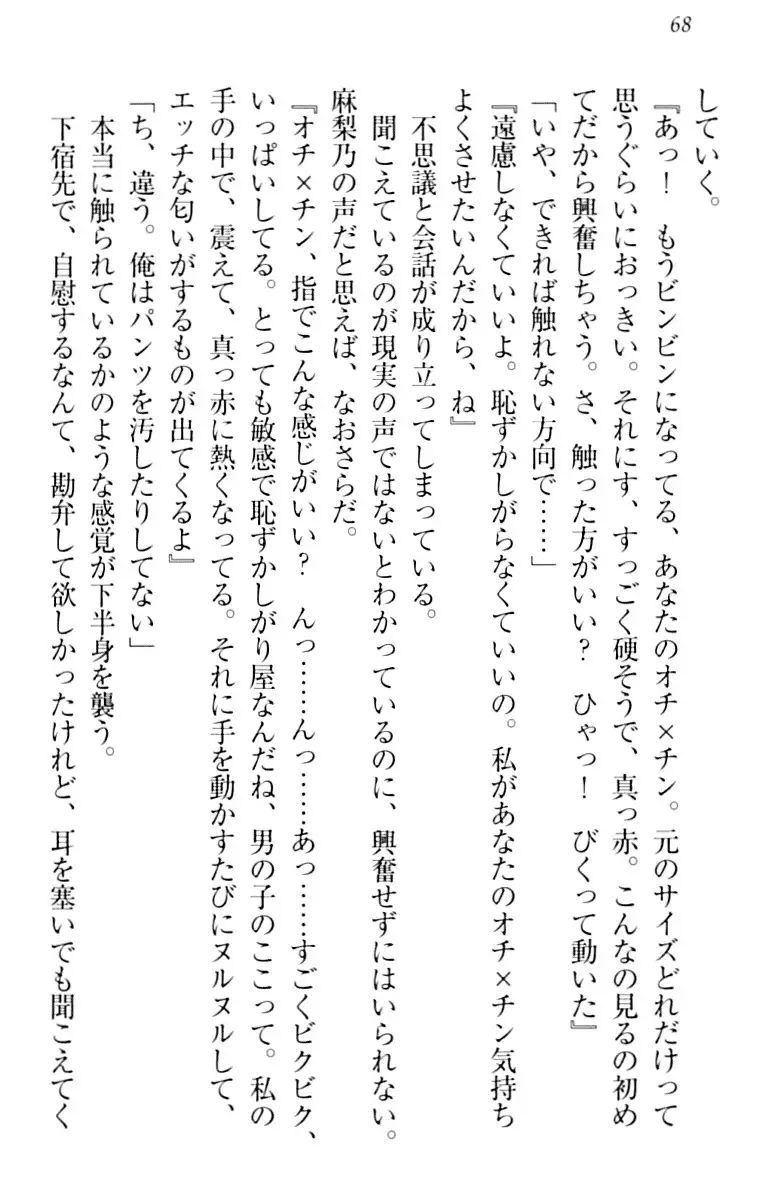 68
していく。
『あっ！　もうビンビンになってる、あなたのオチ×チン。元のサイズどれだけって
思うぐらいにおっきい。それにす、すっごく硬そうで、真っ赤。こんなの見るの初め
てだから興奮しちゃう。さ、触った方がいい？　ひゃっ！　びくって動いた』
「いや、できれば触れない方向で……」
『遠慮しなくていいよ。恥ずかしがらなくていいの。私があなたのオチ×チン気持ち
よくさせたいんだから、ね』
不思議と会話が成り立ってしまっている。
聞こえているのが現実の声ではないとわかっているのに、興奮せずにはいられない。
麻梨乃の声だと思えば、なおさらだ。
『オチ×チン、指でこんな感じがいい？　んっ……んっ……あっ……すごくビクビク、
いっぱいしてる。とっても敏感で恥ずかしがり屋なんだね、男の子のここって。私の
手の中で、震えて、真っ赤に熱くなってる。それに手を動かすたびにヌルヌルして、
エッチな匂いがするものが出てくるよ』
「ち、違う。俺はパンツを汚したりしてない」
本当に触られているかのような感覚が下半身を襲う。
下宿先で、自慰するなんて、勘弁して欲しかったけれど、耳を塞いでも聞こえてく